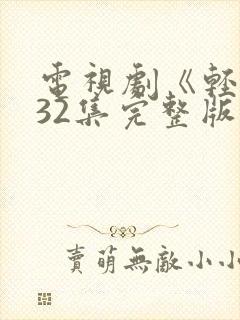 電視劇《輕
32集完整版
賣萌無敵小小